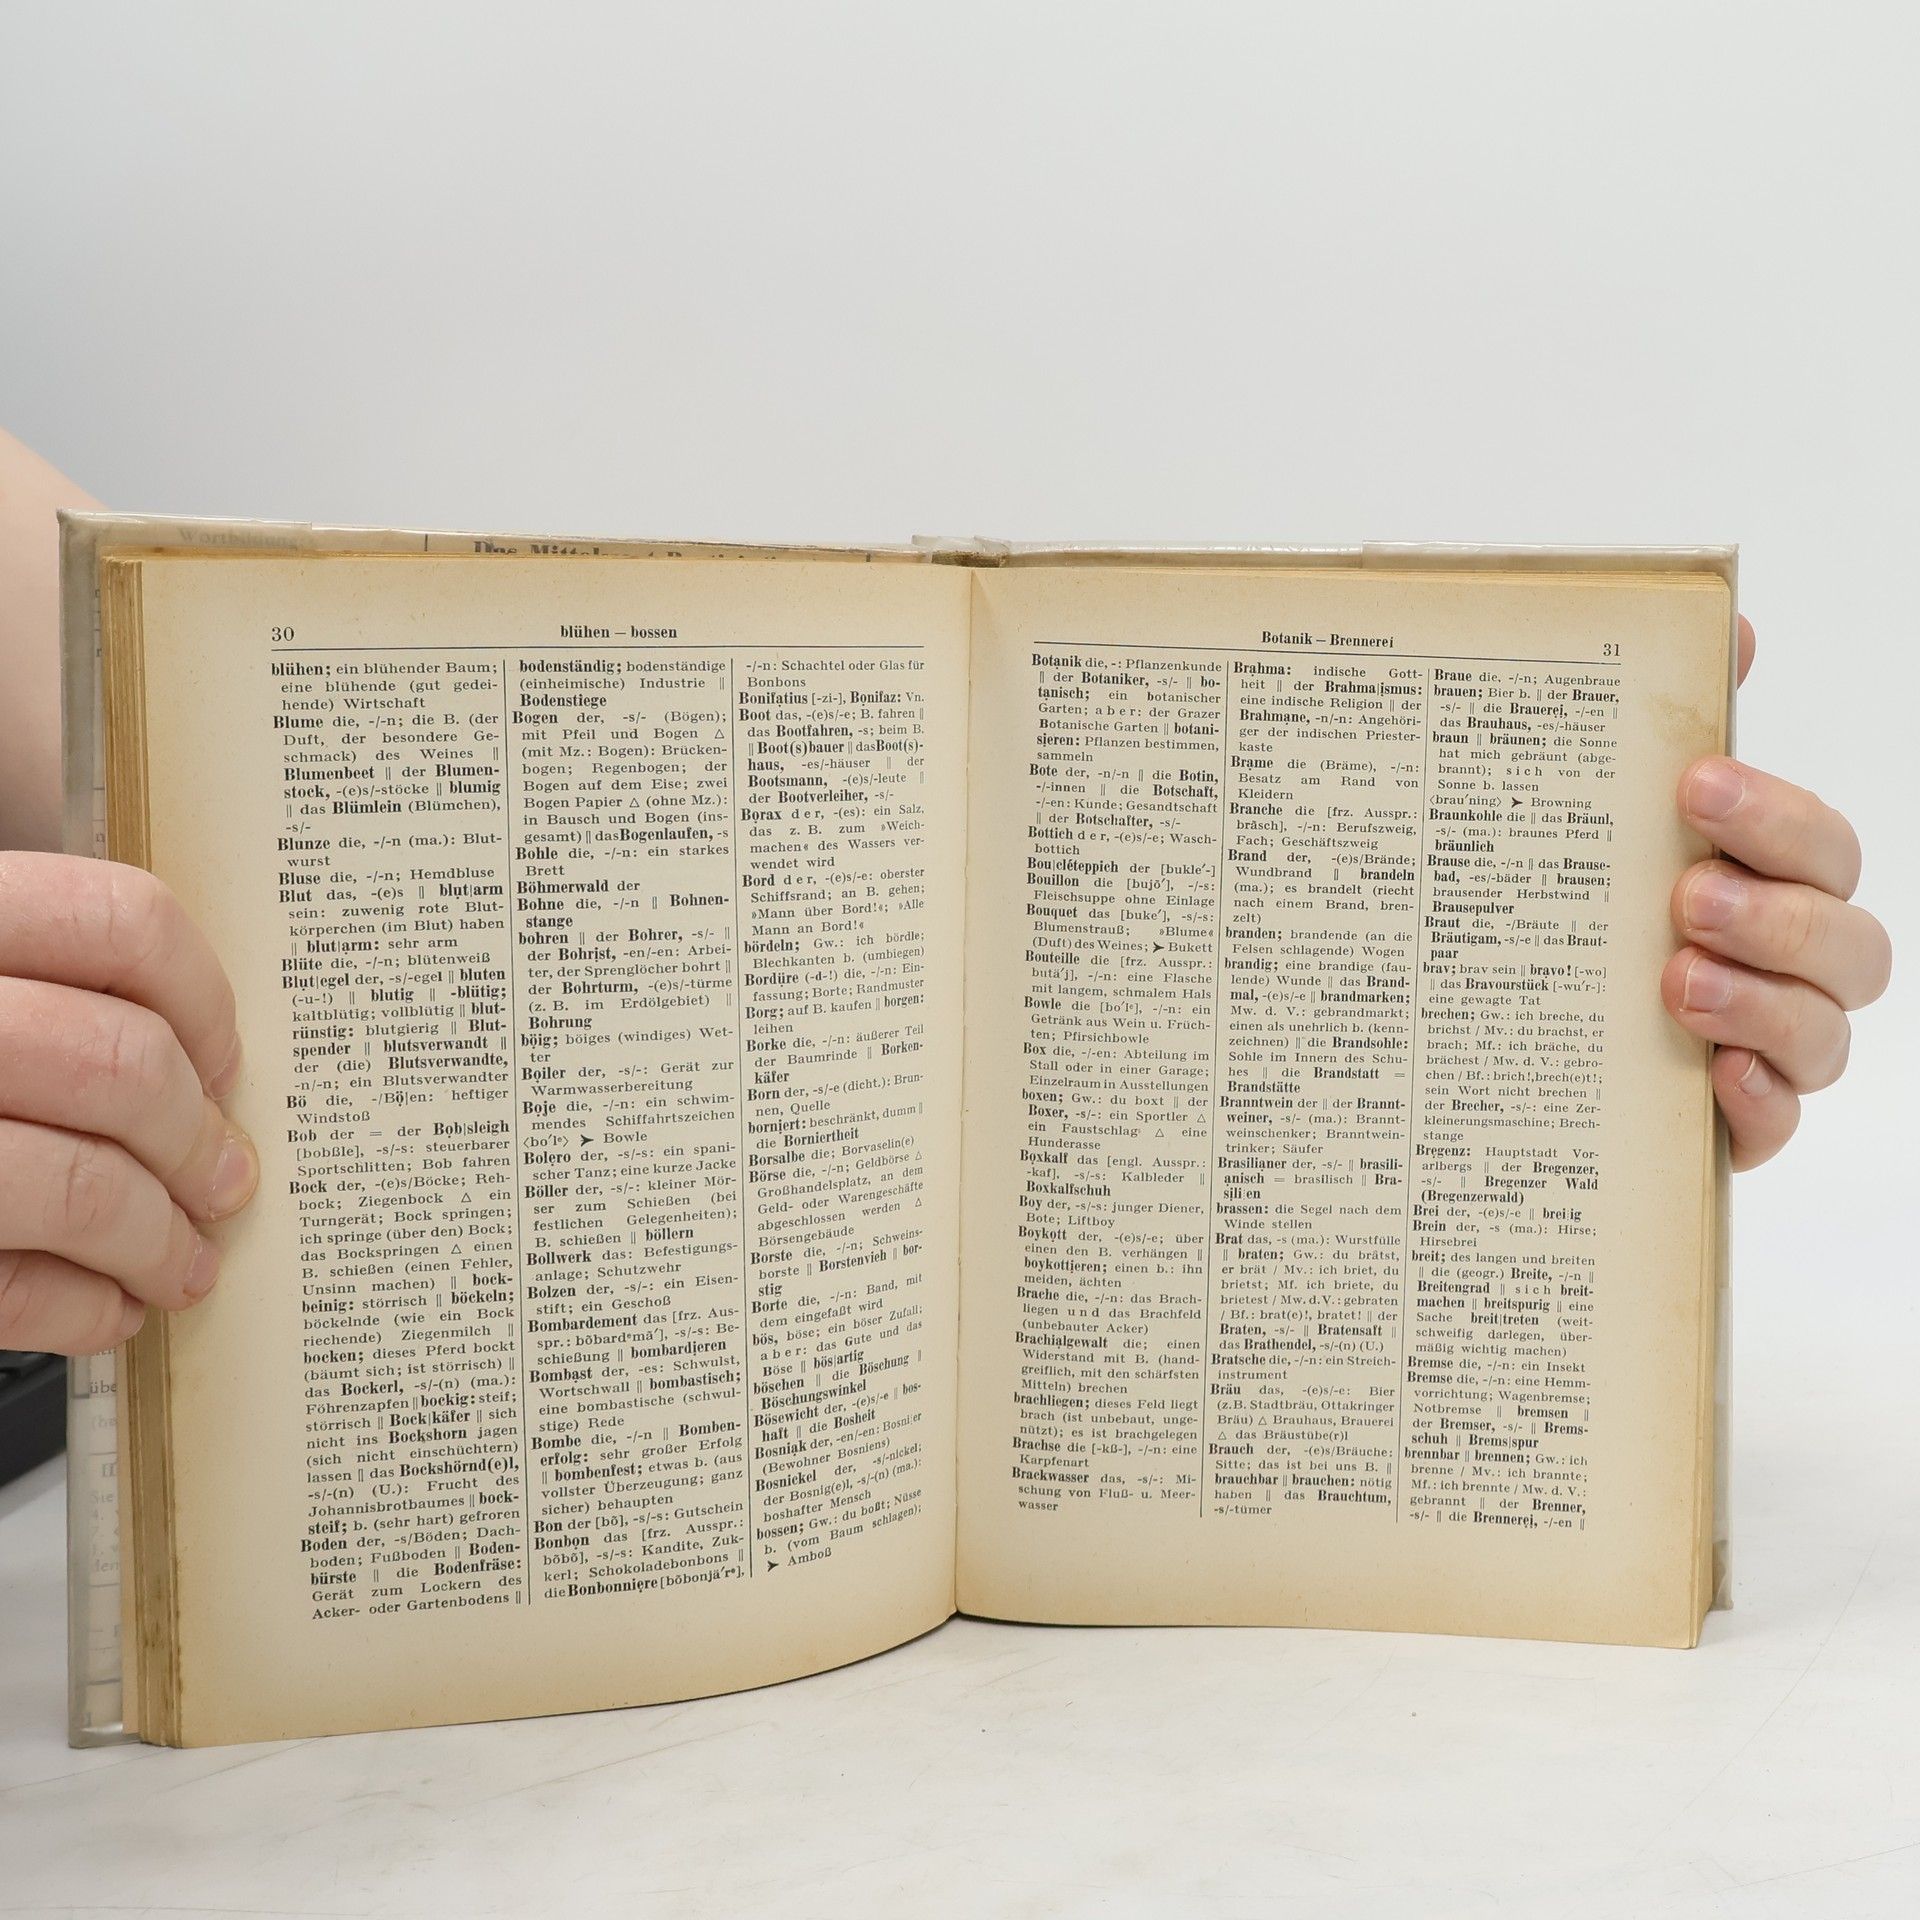 Wortbildung
30
blühen – bossen
blühen; ein blühender Baum;
eine blühende (gut gedei-
hende) Wirtschaft
Blume die, -/-n; die B. (der
Duft, der besondere Ge-
schmack) des Weines ||
Blumenbeet || der Blumen-
stock, -(e)s/-stöcke || blumig
|| das Blümlein (Blümchen),
-s/-
Blunze die, -/-n (ma.): Blut-
wurst
Bluse die, -/-n; Hemdbluse
Blut das, -(e)s || blut|arm
sein: zuwenig rote Blut-
körperchen (im Blut) haben
|| blut|arm: sehr arm
Blüte die, -/-n; blütenweiß
Blut|egel der, -s/-egel || bluten
(-u-!) || blutig || -blütig;
kaltblütig; vollblütig || blut-
rünstig: blutgierig || Blut-
spender || blutsverwandt ||
der (die) Blutsverwandte,
-n/-n; ein Blutsverwandter
Bö die, -/Bö|en: heftiger
Windstoß
Bob der = der Bob|sleigh
[bobßle], -s/-s: steuerbarer
Sportschlitten; Bob fahren
Bock der, -(e)s/Böcke; Reh-
bock; Ziegenbock △ ein
Turngerät; Bock springen;
ich springe (über den) Bock;
das Bockspringen △ einen
B. schießen (einen Fehler,
Unsinn machen) || bock-
beinig: störrisch || böckeln;
böckelnde (wie ein Bock
riechende) Ziegenmilch ||
bocken; dieses Pferd bockt
(bäumt sich; ist störrisch) ||
das Bockerl, -s/-(n) (ma.):
Föhrenzapfen || bockig: steif;
störrisch || Bock|käfer || sich
nicht ins Bockshorn jagen
(sich nicht einschüchtern)
lassen || das Bockshörnd(e)l,
-s/-(n) (U.): Frucht des
Johannisbrotbaumes || bock-
steif; b. (sehr hart) gefroren
Boden der, -s/Böden; Dach-
boden; Fußboden || Boden-
bürste || die Bodenfräse:
Gerät zum Lockern des
Acker- oder Gartenbodens ||
bodenständig; bodenständige
(einheimische) Industrie ||
Bodenstiege
Bogen der, -s/- (Bögen);
mit Pfeil und Bogen △
(mit Mz.: Bogen): Brücken-
bogen; Regenbogen; der
Bogen auf dem Eise; zwei
Bogen Papier △ (ohne Mz.):
in Bausch und Bogen (ins-
gesamt) || das Bogenlaufen, -s
Bohle die, -/-n: ein starkes
Brett
Böhmerwald der
Bohne die, -/-n || Bohnen-
stange
bohren || der Bohrer, -s/- ||
der Bohrist, -en/-en: Arbei-
ter, der Sprenglöcher bohrt ||
der Bohrturm, -(e)s/-türme
(z. B. im Erdölgebiet) ||
Bohrung
böig; böiges (windiges) Wet-
ter
Boiler der, -s/-: Gerät zur
Warmwasserbereitung
Boje die, -/-n: ein schwim-
mendes Schiffahrtszeichen
⟨bo′lᵉ⟩ ➤ Bowle
Bolero der, -s/-s: ein spani-
scher Tanz; eine kurze Jacke
Böller der, -s/-: kleiner Mör-
ser zum Schießen (bei
festlichen Gelegenheiten);
B. schießen || böllern
Bollwerk das: Befestigungs-
anlage; Schutzwehr
Bolzen der, -s/-: ein Eisen-
stift; ein Geschoß
Bombardement das [frz. Aus-
spr.: bõbardᵉmã′], -s/-s: Be-
schießung || bombardieren
Bombast der, -es: Schwulst,
Wortschwall || bombastisch;
eine bombastische (schwul-
stige) Rede
Bombe die, -/-n || Bomben-
erfolg: sehr großer Erfolg
|| bombenfest; etwas b. (aus
vollster Überzeugung; ganz
sicher) behaupten
Bon der [bõ], -s/-s: Gutschein
Bonbon das [frz. Ausspr.:
bõbõ], -s/-s: Kandite, Zuk-
kerl; Schokoladebonbons ||
die Bonbonniere [bõbonjä′rᵉ],
-/-n: Schachtel oder Glas für
Bonbons
Bonifatius [-zi-], Bonifaz: Vn.
Boot das, -(e)s/-e; B. fahren ||
das Bootfahren, -s; beim B.
|| Boot(s)bauer || das Boot(s)-
haus, -es/-häuser || der
Bootsmann, -(e)s/-leute ||
der Bootverleiher, -s/-
Borax der, -(es): ein Salz,
das z. B. zum »Weich-
machen« des Wassers ver-
wendet wird
Bord der, -(e)s/-e: oberster
Schiffsrand; an B. gehen;
»Mann über Bord!«; »Alle
Mann an Bord!«
bördeln; Gw.: ich bördle;
Blechkanten b. (umbiegen)
Bordüre (-d-!) die, -/-n: Ein-
fassung; Borte; Randmuster
Borg; auf B. kaufen || borgen:
leihen
Borke die, -/-n: äußerer Teil
der Baumrinde || Borken-
käfer
Born der, -s/-e (dicht.): Brun-
nen, Quelle
borniert: beschränkt, dumm ||
die Borniertheit
Borsalbe die; Borvaselin(e)
Börse die, -/-n; Geldbörse △
Großhandelsplatz, an dem
Geld- oder Warengeschäfte
abgeschlossen werden △
Börsengebäude
Borste die, -/-n; Schweins-
borste || Borstenvieh || bor-
stig
Borte die, -/-n: Band, mit
dem eingefaßt wird
bös, böse; ein böser Zufall;
aber: das Gute und das
Böse || bös|artig
böschen || die Böschung ||
Böschungswinkel
Bösewicht der, -(e)s/-e || bos-
haft || die Bosheit
Bosniak der, -en/-en: Bosnier
(Bewohner Bosniens)
Bosnickel der, -s/-nickel;
der Bosnig(e)l, -s/-(n) (ma.):
boshafter Mensch
bossen; Gw.: du boßt; Nüsse
b. (vom Baum schlagen);
➤ Amboß
Botanik – Brennerei
31
Botanik die, -: Pflanzenkunde
|| der Botaniker, -s/- || bo-
tanisch; ein botanischer
Garten; aber: der Grazer
Botanische Garten || botani-
sieren: Pflanzen bestimmen,
sammeln
Bote der, -n/-n || die Botin,
-/-innen || die Botschaft,
-/-en: Kunde; Gesandtschaft
|| der Botschafter, -s/-
Bottich der, -(e)s/-e; Wasch-
bottich
Bou|cléteppich der [bukle′-]
Bouillon die [bujõ′], -/-s:
Fleischsuppe ohne Einlage
Bouquet das [buke′], -s/-s:
Blumenstrauß; »Blume«
(Duft) des Weines; ➤ Bukett
Bouteille die [frz. Ausspr.:
butä′j], -/-n: eine Flasche
mit langem, schmalem Hals
Bowle die [bo′lᵉ], -/-n: ein
Getränk aus Wein u. Früch-
ten; Pfirsichbowle
Box die, -/-en: Abteilung im
Stall oder in einer Garage;
Einzelraum in Ausstellungen
boxen; Gw.: du boxt || der
Boxer, -s/-: ein Sportler △
ein Faustschlag △ eine
Hunderasse
Boxkalf das [engl. Ausspr.:
-kaf], -s/-s: Kalbleder ||
Boxkalfschuh
Boy der, -s/-s: junger Diener,
Bote; Liftboy
Boykott der, -(e)s/-e; über
einen den B. verhängen ||
boykottieren; einen b.: ihn
meiden, ächten
Brache die, -/-n: das Brach-
liegen und das Brachfeld
(unbebauter Acker)
Brachialgewalt die; einen
Widerstand mit B. (hand-
greiflich, mit den schärfsten
Mitteln) brechen
brachliegen; dieses Feld liegt
brach (ist unbebaut, unge-
nützt); es ist brachgelegen
Brachse die [-kß-], -/-n: eine
Karpfenart
Brackwasser das, -s/-: Mi-
schung von Fluß- u. Meer-
wasser
Brahma: indische Gott-
heit || der Brahma|ismus:
eine indische Religion || der
Brahmane, -n/-n: Angehöri-
ger der indischen Priester-
kaste
Brame die (Bräme), -/-n:
Besatz am Rand von
Kleidern
Branche die [frz. Ausspr.:
brãsch], -/-n: Berufszweig,
Fach; Geschäftszweig
Brand der, -(e)s/Brände;
Wundbrand || brandeln
(ma.); es brandelt (riecht
nach einem Brand, bren-
zelt)
branden; brandende (an die
Felsen schlagende) Wogen
brandig; eine brandige (fau-
lende) Wunde || das Brand-
mal, -(e)s/-e || brandmarken;
Mw. d. V.: gebrandmarkt;
einen als unehrlich b. (kenn-
zeichnen) || die Brandsohle:
Sohle im Innern des Schu-
hes || die Brandstatt =
Brandstätte
Branntwein der || der Brannt-
weiner, -s/- (ma.): Brannt-
weinschenker; Branntwein-
trinker; Säufer
Brasilianer der, -s/- || brasili-
anisch = brasilisch || Bra-
silien
brassen: die Segel nach dem
Winde stellen
Brat das, -s (ma.): Wurstfülle
|| braten; Gw.: du brätst,
er brät / Mv.: ich briet, du
brietst; Mf. ich briete, du
brietest / Mw. d. V.: gebraten
/ Bf.: brat(e)!, bratet! || der
Braten, -s/- || Bratensaft ||
das Brathendel, -s/-(n) (U.)
Bratsche die, -/-n: ein Streich-
instrument
Bräu das, -(e)s/-e: Bier
(z.B. Stadtbräu, Ottakringer
Bräu) △ Brauhaus, Brauerei
△ das Bräustübe(r)l
Brauch der, -(e)s/Bräuche;
Sitte; das ist bei uns B. ||
brauchbar || brauchen: nötig
haben || das Brauchtum,
-s/-tümer
Braue die, -/-n; Augenbraue
brauen; Bier b. || der Brauer,
-s/- || die Brauerei, -/-en ||
das Brauhaus, -es/-häuser
braun || bräunen; die Sonne
hat mich gebräunt (abge-
brannt); sich von der
Sonne b. lassen
⟨brau′ning⟩ ➤ Browning
Braunkohle die || das Bräunl,
-s/- (ma.): braunes Pferd ||
bräunlich
Brause die, -/-n || das Brause-
bad, -es/-bäder || brausen;
brausender Herbstwind ||
Brausepulver
Braut die, -/Bräute || der
Bräutigam, -s/-e || das Braut-
paar
brav; brav sein || bravo! [-wo]
|| das Bravourstück [-wu′r-]:
eine gewagte Tat
brechen; Gw.: ich breche, du
brichst / Mv.: du brachst, er
brach; Mf.: ich bräche, du
brächest / Mw. d. V.: gebro-
chen / Bf.: brich!, brech(e)t!;
sein Wort nicht brechen ||
der Brecher, -s/-: eine Zer-
kleinerungsmaschine; Brech-
stange
Bregenz: Hauptstadt Vor-
arlbergs || der Bregenzer,
-s/- || Bregenzer Wald
(Bregenzerwald)
Brei der, -(e)s/-e || breiig
Brein der, -s (ma.): Hirse;
Hirsebrei
breit; des langen und breiten
|| die (geogr.) Breite, -/-n ||
Breitengrad || sich breit-
machen || breitspurig || eine
Sache breit|treten (weit-
schweifig darlegen, über-
mäßig wichtig machen)
Bremse die, -/-n: ein Insekt
Bremse die, -/-n: eine Hemm-
vorrichtung; Wagenbremse;
Notbremse || bremsen ||
der Bremser, -s/- || Brems-
schuh || Brems|spur
brennbar || brennen; Gw.: ich
brenne / Mv.: ich brannte;
Mf.: ich brennte / Mw. d. V.:
gebrannt || der Brenner,
-s/- || die Brennerei, -/-en ||